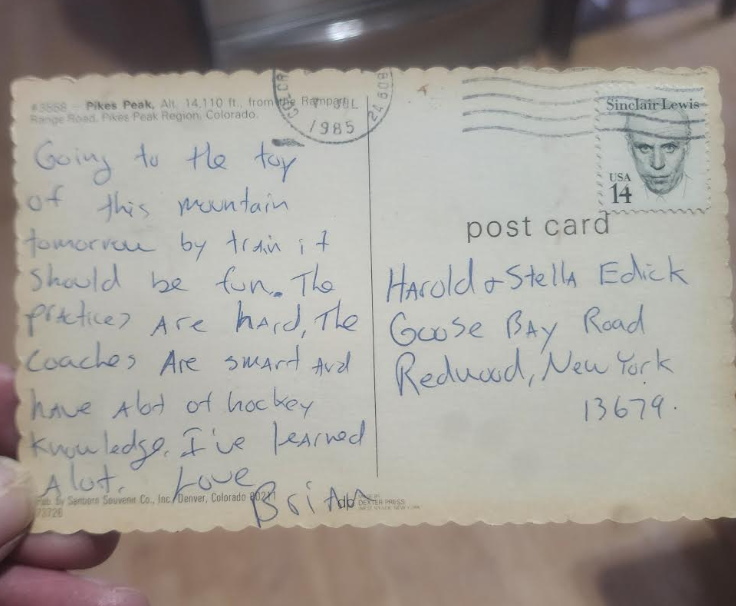 #3558 - Pikes Peak, Alt. 14,110 ft., from the Rampart
Range Road, Pikes Peak Region, Colorado.
COLOR
JUL
1985
Sinclair Lewis
USA
14
post card
Going to the top
of this mountain
tomorrow by train it
should be fun. The
practices are hard, The
coaches are smart and
have alot of hockey
knowledge. I've learned
alot. Love
Brian
Harold & Stella Edick
Goose Bay Road
Redwood, New York
13679.
Pub. By Sanborn Souvenir Co., Inc., Denver, Colorado
DEXTER PRESS